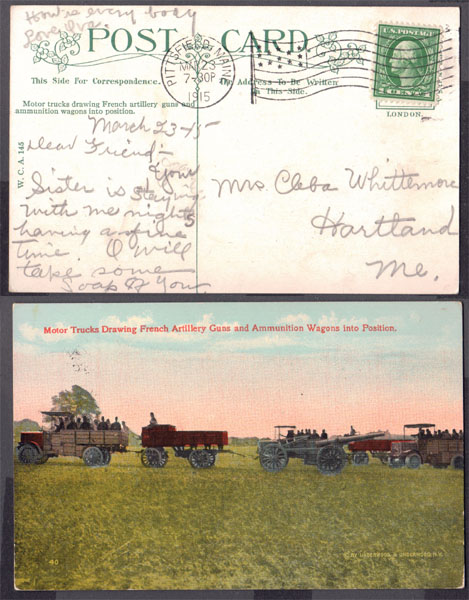 How is every body
Love Iva.
POST CARD
This Side For Correspondence.
The Address To Be Written
on This Side.
PITTSFIELD, MAINE
MAR 23
7-30P
1915
U.S. POSTAGE
1 CENT 1
LONDON.
Motor trucks drawing French artillery guns and
ammunition wagons into position.
W. C. A. 145
March 23-15
Dear Friend-
Your
Sister is staying
with me nights
having a fine
time. I will
take some
Soap of You.
Mrs Cleba Whittemore
Hartland
Me.
Motor Trucks Drawing French Artillery Guns and Ammunition Wagons into Position.
40
BY UNDERWOOD & UNDERWOOD N.Y.